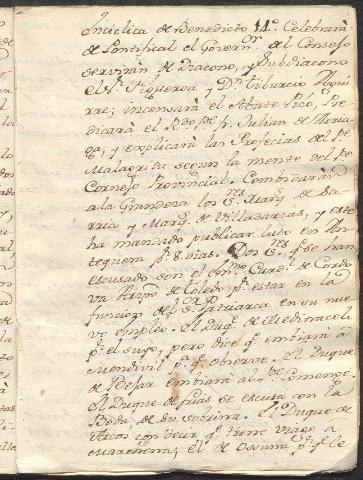 de Benedicto 14º. Celebrará
de Pontifical el Govern.or del Consejo
servirán de Diacono, y Subdiacono
el S.r Figueroa y D.n Tiburcio Aguir
rre; incensará el Abate Pico, Pre
dicará el R.do P.e fr. Julian de
y explicará las Profecias del P.e
Malagrida segun la mente del P.e
Cornejo Provincial. Combidarán
a la Grandera los S.res Marq.s de Sa
rria y Marq.s de Villadarias, y este
ha mandado publicar luto en An
tequera p.r 8. dias. Los S.res q.e se han
escusado son el Em.mo Card.l de Cordo
va Arzp.o de Toledo p.r estar en la
funcion del S.r Patriarca en su nue
vo empleo. El Duq.e de Medinaceli
p.r el suyo, pero dice q.e embiará á
Mondivil p.a q.e observe. El Duque
de Bejar embiará al
El Duque de se escusa con la
Boda de su sobrina. El Duque de
Arcos con decir q.e tiene viage a
Marchena; el de Ossuna p.r q.e le